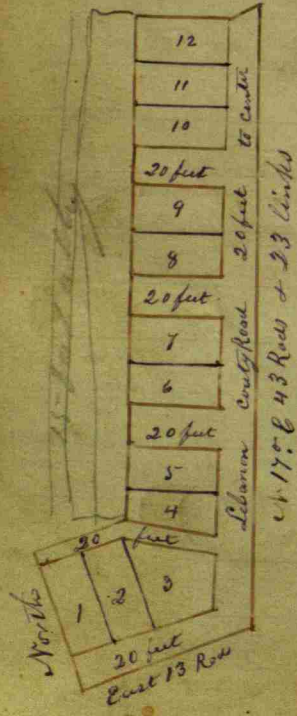 12
11
10
20 feet
9
8
20 feet
7
6
20 feet
5
4
20 feet
1
2
3
20 feet
North
East 13 Rods
Lebanon County Road 20 feet to center
N 17° E 43 Rods & 23 links